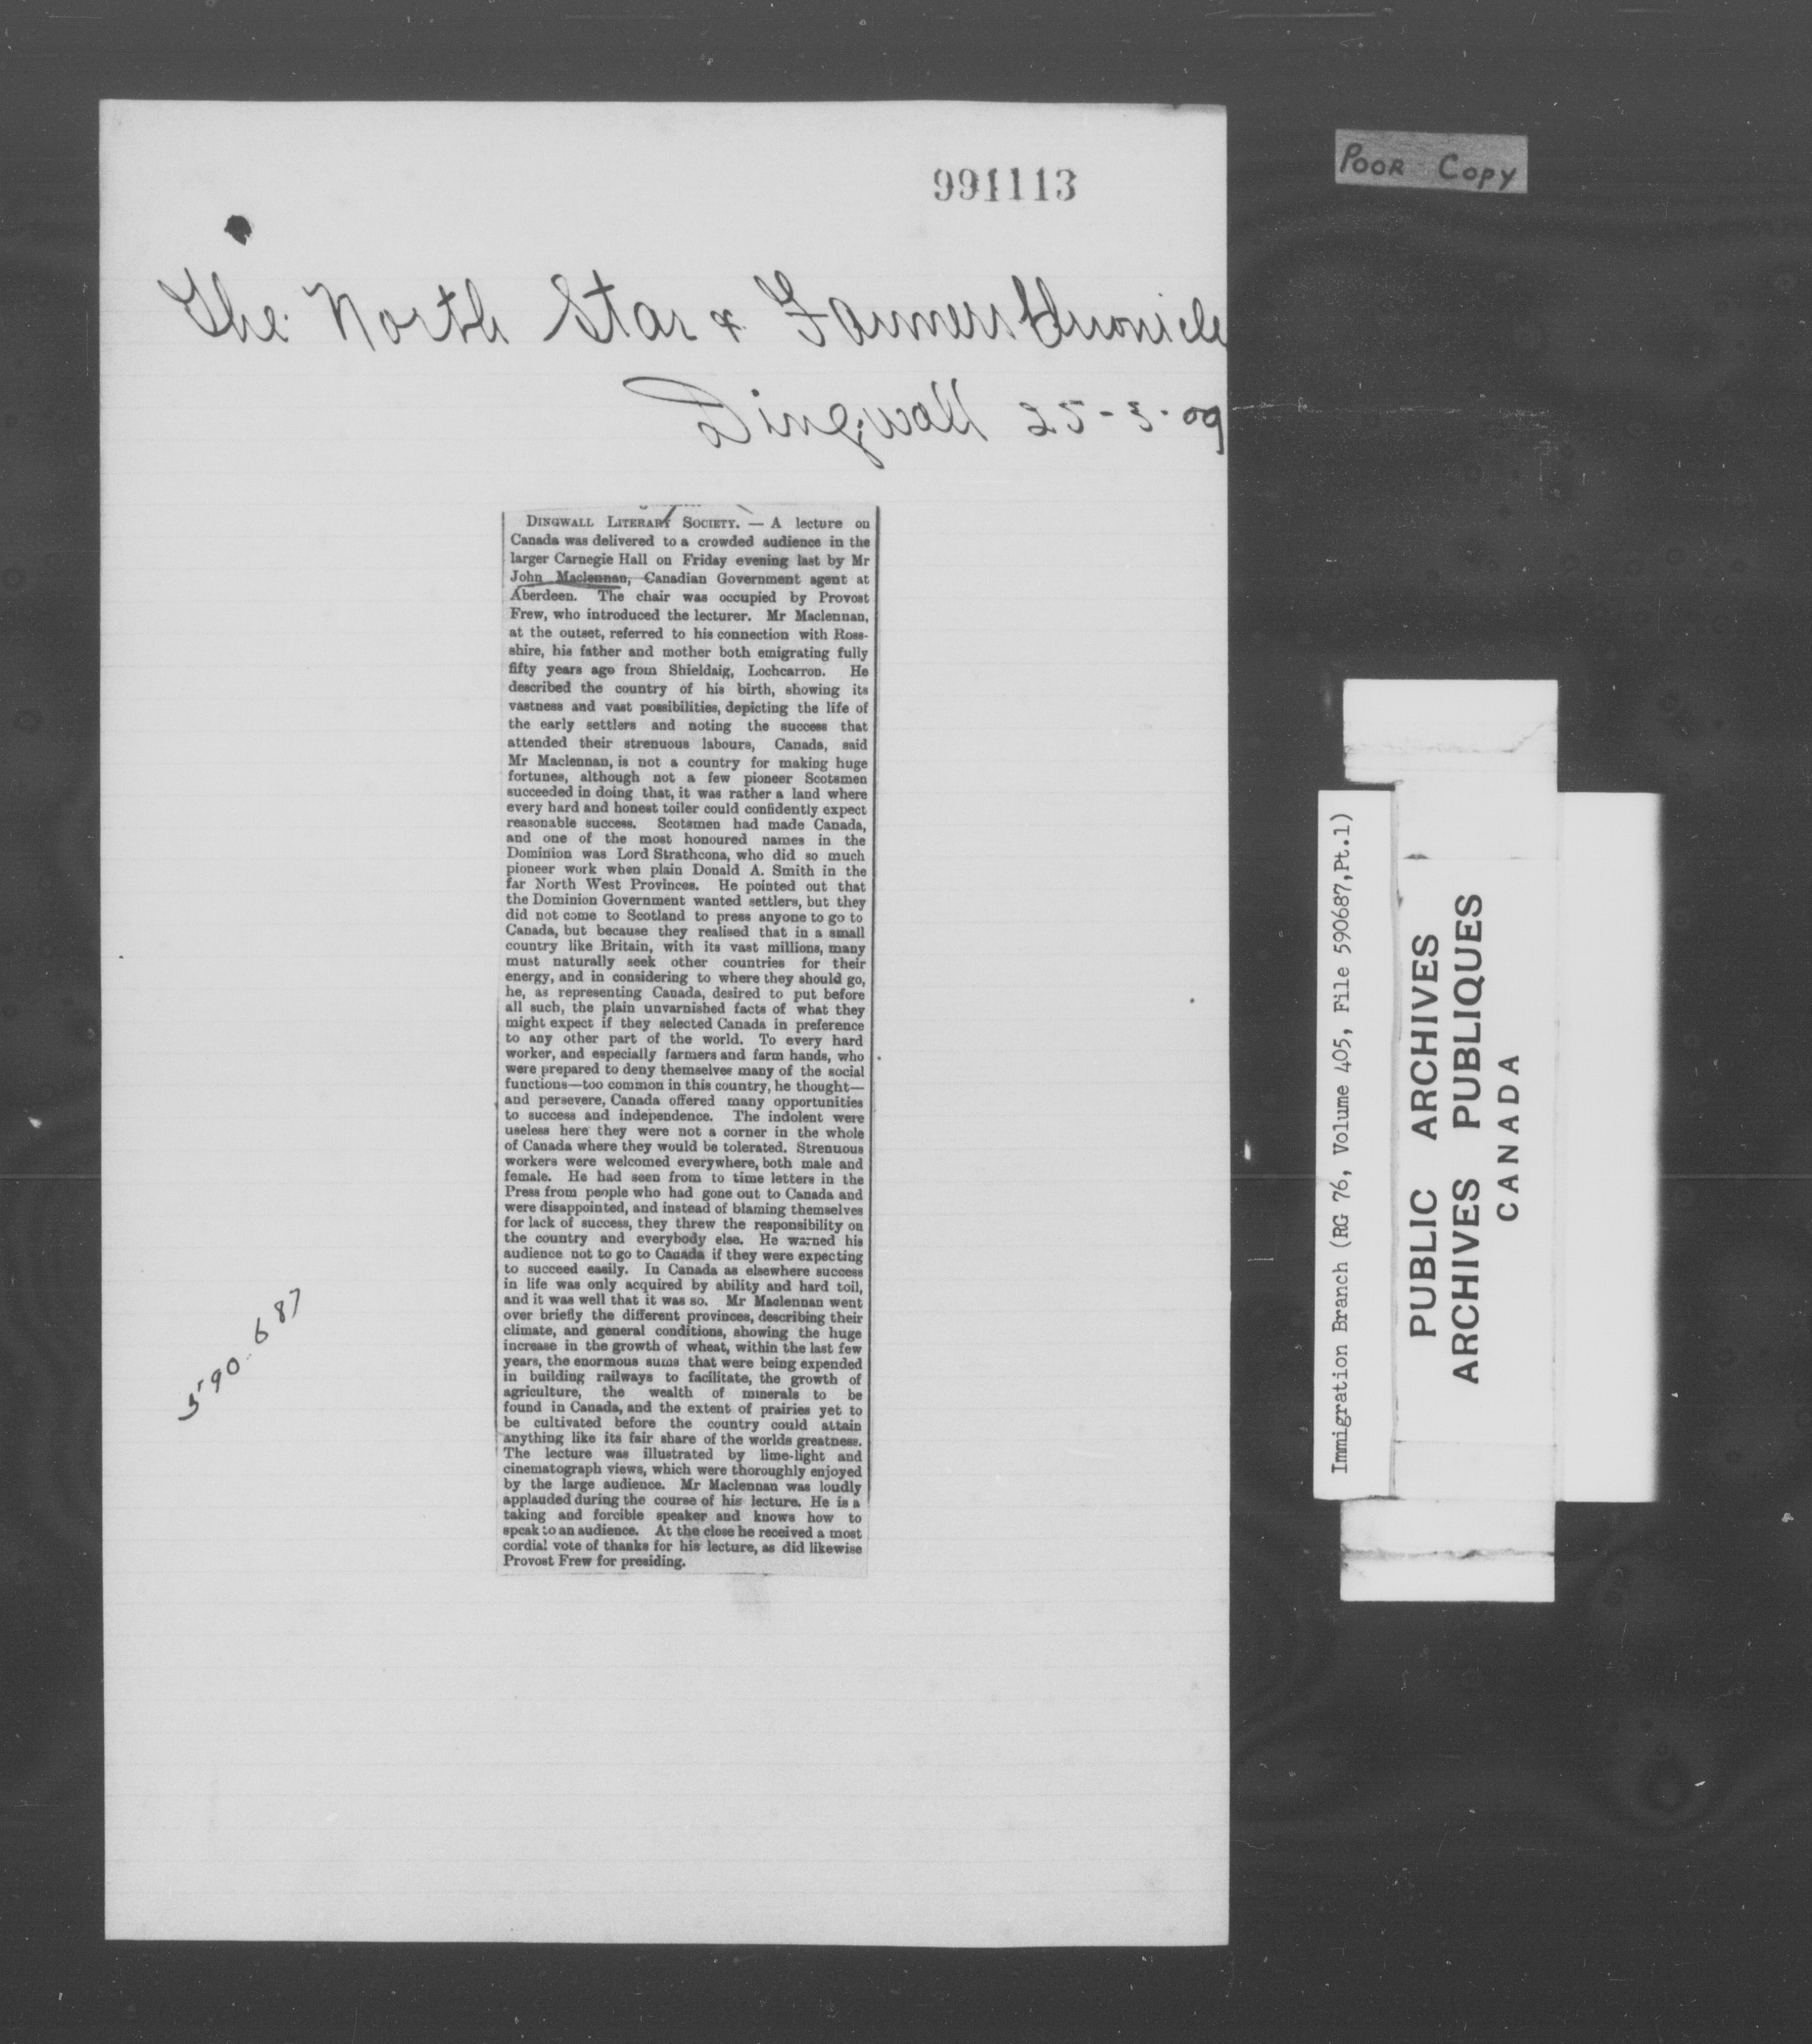 991113
POOR COPY
The North Star & Farmers Chronicle
Dingwall 25-3-09
DINGWALL LITERARY SOCIETY. — A lecture on
Canada was delivered to a crowded audience in the
larger Carnegie Hall on Friday evening last by Mr
John Maclennan, Canadian Government agent at
Aberdeen. The chair was occupied by Provost
Frew, who introduced the lecturer. Mr Maclennan,
at the outset, referred to his connection with Ross-
shire, his father and mother both emigrating fully
fifty years ago from Shieldaig, Lochcarron. He
described the country of his birth, showing its
vastness and vast possibilities, depicting the life of
the early settlers and noting the success that
attended their strenuous labours, Canada, said
Mr Maclennan, is not a country for making huge
fortunes, although not a few pioneer Scotsmen
succeeded in doing that, it was rather a land where
every hard and honest toiler could confidently expect
reasonable success. Scotsmen had made Canada,
and one of the most honoured names in the
Dominion was Lord Strathcona, who did so much
pioneer work when plain Donald A. Smith in the
far North West Provinces. He pointed out that
the Dominion Government wanted settlers, but they
did not come to Scotland to press anyone to go to
Canada, but because they realised that in a small
country like Britain, with its vast millions, many
must naturally seek other countries for their
energy, and in considering to where they should go,
he, as representing Canada, desired to put before
all such, the plain unvarnished facts of what they
might expect if they selected Canada in preference
to any other part of the world. To every hard
worker, and especially farmers and farm hands, who
were prepared to deny themselves many of the social
functions—too common in this country, he thought—
and persevere, Canada offered many opportunities
to success and independence. The indolent were
useless here they were not a corner in the whole
of Canada where they would be tolerated. Strenuous
workers were welcomed everywhere, both male and
female. He had seen from to time letters in the
Press from people who had gone out to Canada and
were disappointed, and instead of blaming themselves
for lack of success, they threw the responsibility on
the country and everybody else. He warned his
audience not to go to Canada if they were expecting
to succeed easily. In Canada as elsewhere success
in life was only acquired by ability and hard toil,
and it was well that it was so. Mr Maclennan went
over briefly the different provinces, describing their
climate, and general conditions, showing the huge
increase in the growth of wheat, within the last few
years, the enormous sums that were being expended
in building railways to facilitate, the growth of
agriculture, the wealth of minerals to be
found in Canada, and the extent of prairies yet to
be cultivated before the country could attain
anything like its fair share of the worlds greatness.
The lecture was illustrated by lime-light and
cinematograph views, which were thoroughly enjoyed
by the large audience. Mr Maclennan was loudly
applauded during the course of his lecture. He is a
taking and forcible speaker and knows how to
speak to an audience. At the close he received a most
cordial vote of thanks for his lecture, as did likewise
Provost Frew for presiding.
590-687
Immigration Branch (RG 76, Volume 405, File 590687,Pt.1)
PUBLIC ARCHIVES
ARCHIVES PUBLIQUES
CANADA